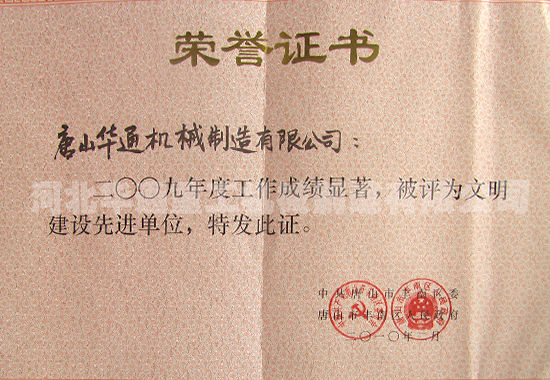 荣誉证书
唐山华通机械制造有限公司：
二〇〇九年度工作成绩显著，被评为文明
建设先进单位，特发此证。
中共唐山市丰南区委
唐山市丰南区人民政府
二〇一〇年二月